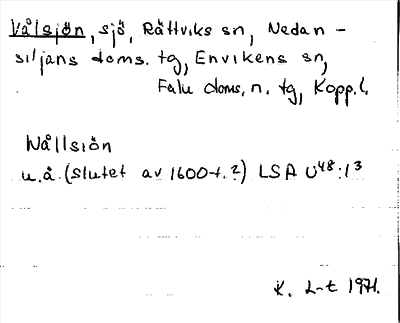 Vålsjön, sjö, Rättviks sn, Nedan-
siljans doms. tg, Envikens sn,
Falu doms. n. tg, Kopp. l.
Wållsiön
u.å. (slutet av 1600-t. ?) LSA U48:13
K. L-t 1971.